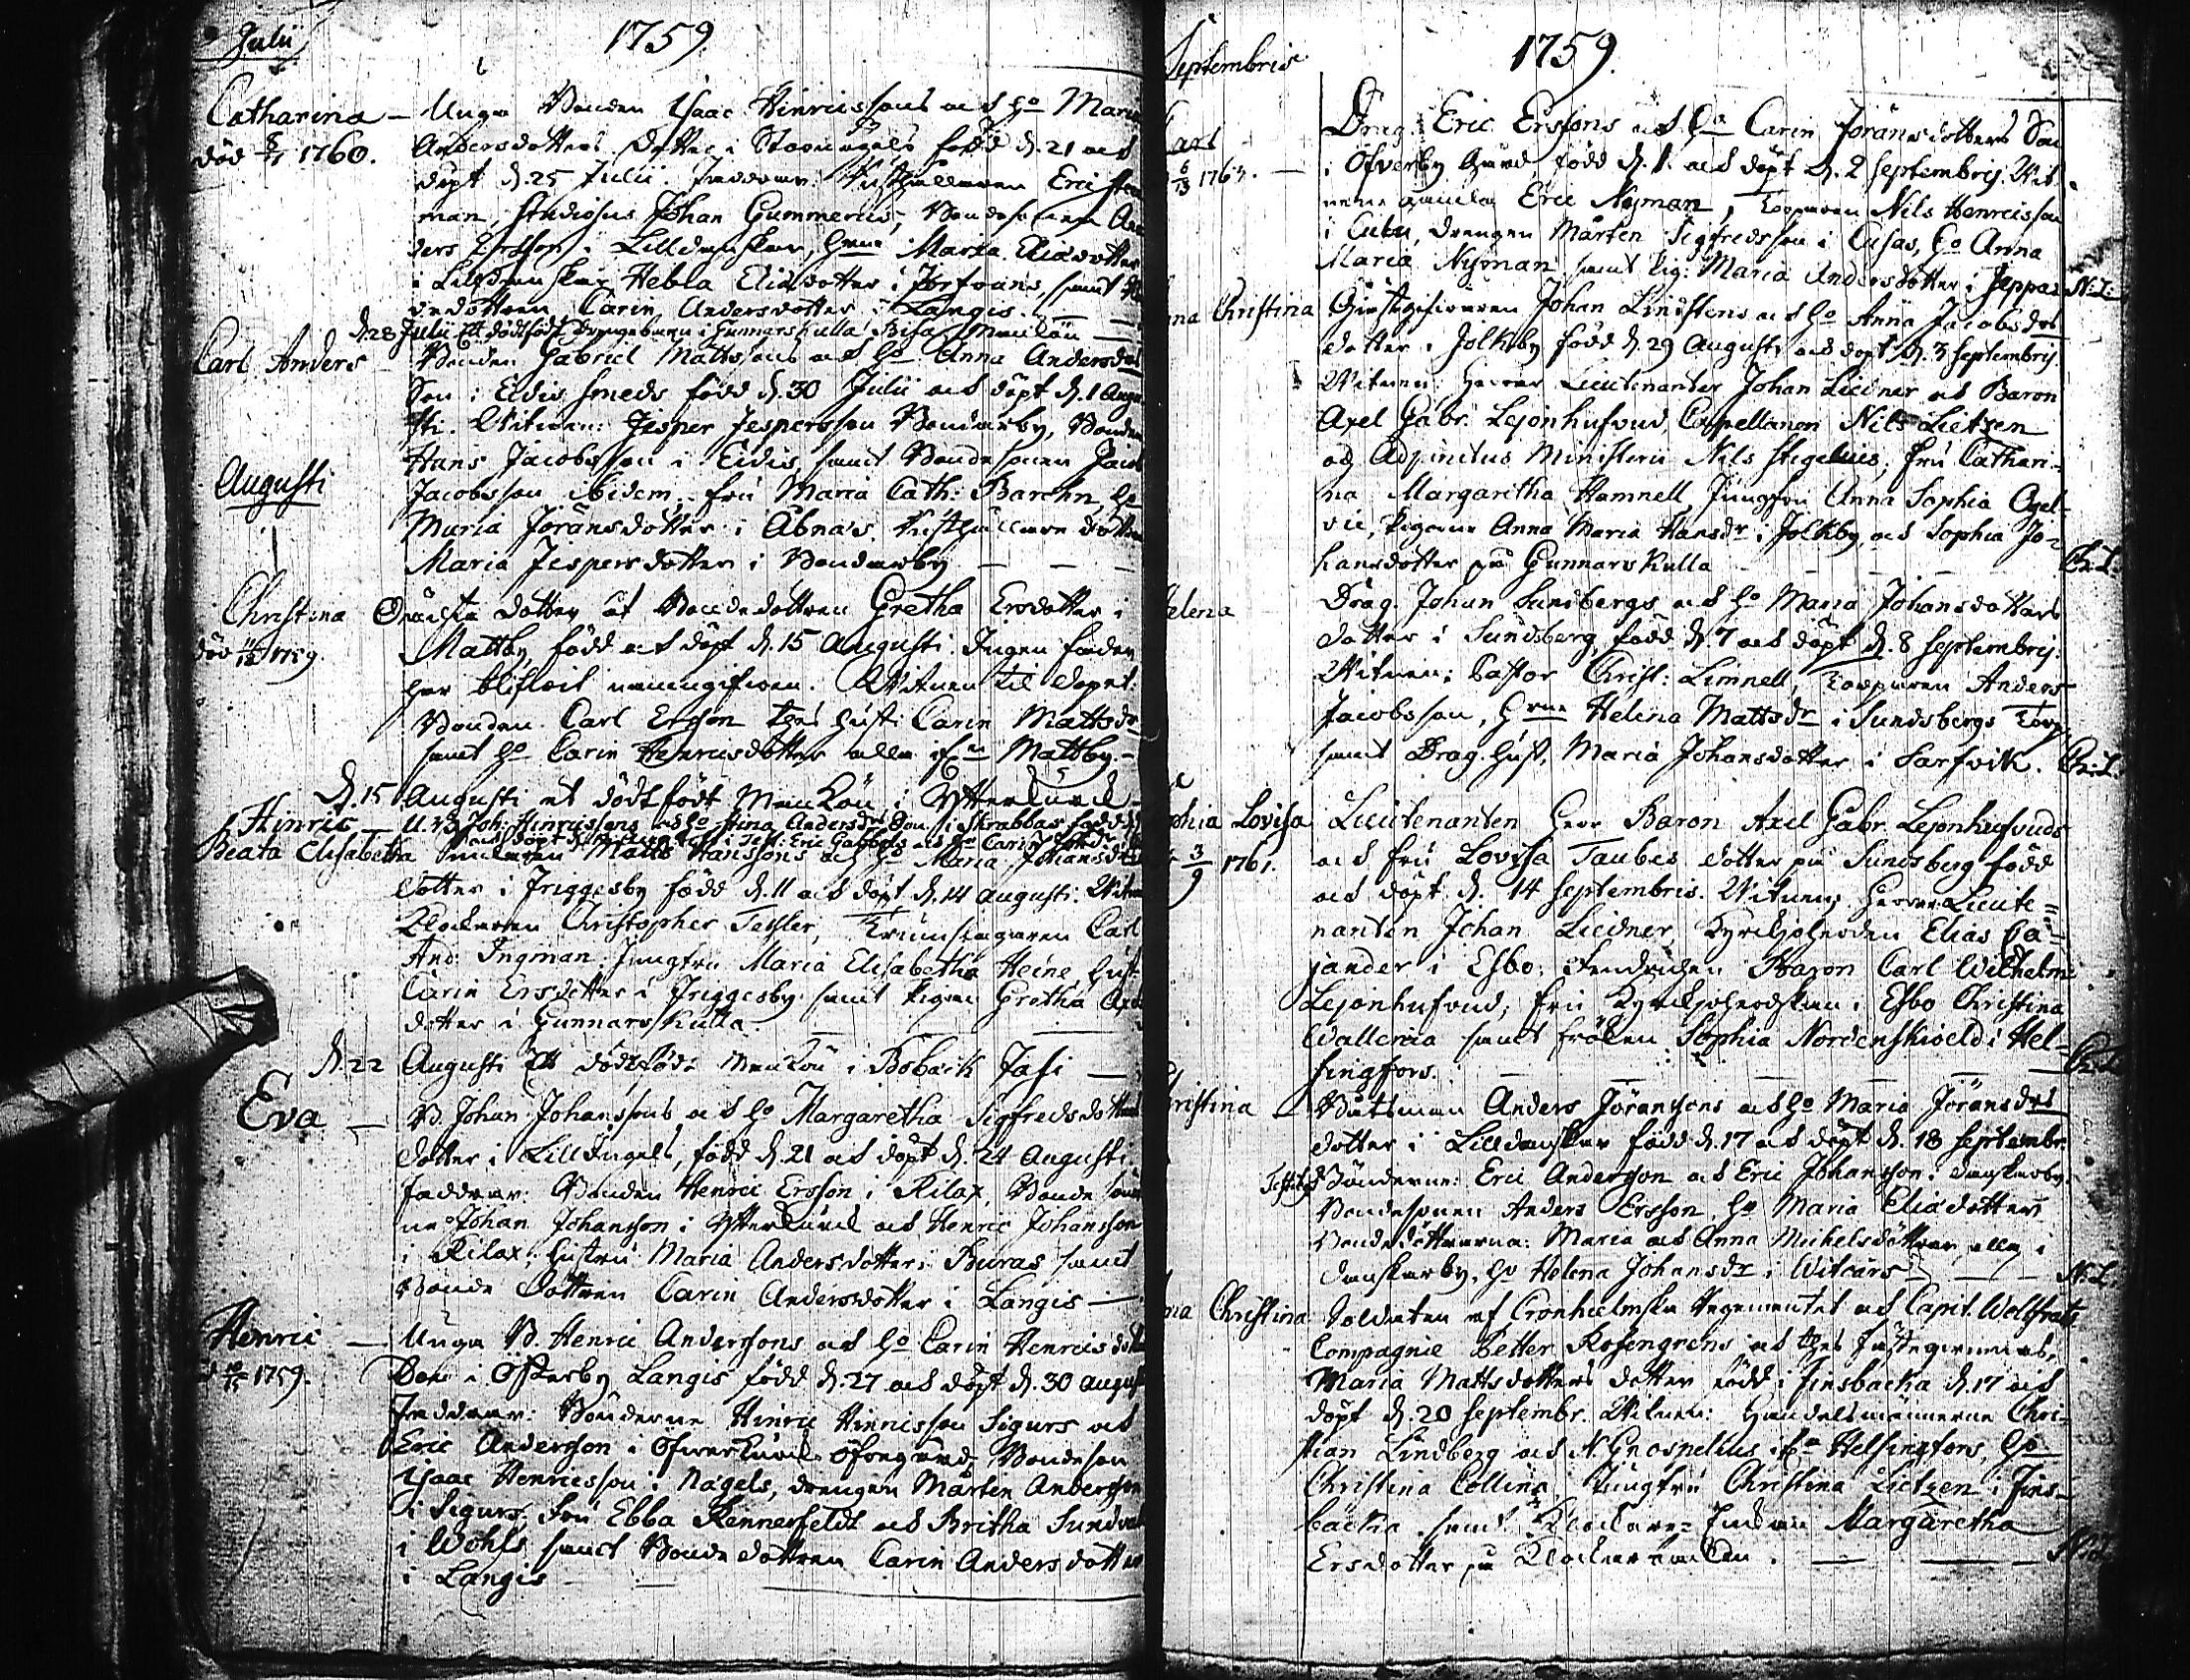 Julii
1759.
Catharina — Unga Bonden Isaac Hinricssons och ho Maria
död 8/1 1760. Andersdotters dotter i Stornägels född d. 21 och
döpt d. 25 Julii. Faddrar: Rusthållaren Eric
man, Studiosus Johan Gummerus, Bondesonen An
ders Ersson i Lilldanskar, Maria Eliædotter
i Lilldanskar Hebla Eliædotter i Torfvans, samt
dedottren Carin Andersdotter i Langis.
d. 28 Julii Ett dödfödt drängebarn i Gunnarskulla Bisa, Mankön
Carl Anders Bonden Gabriel Mattssons och ho Anna Andersdrs
Son i Eidis Smeds född d. 30 Julii och döpt d. 1 Augu
sti. Witnen: Jesper Jespersson Bondarby, Bonden
Hans Jacobsson i Eidis, samt Bondesonen Jacob
Augusti
Jacobsson ibidem, fru Maria Cath: Barchn, ho
Maria Jöransdotter i Åbnäs. Rusthållare dottren
Maria Jespersdotter i Bondarby
Christina Oäckta dotter åt Bondedottren Gretha Ersdotter i
död 1759. Mattby, född och döpt d. 15 Augusti. Ingen fader
har blifvit namngifven. Witnen til dopet:
Bonden Carl Ersson thes hust: Carin Mattsdr
samt ho Carin Henricsdotter alla ifrån Mattby.
d. 15 Augusti et dödtfödt Mankön i Ytterkurck
Hinric — U.B. Joh: Hinricssons och ho Stina Andersdrs Son i Skrabbas född
och döpt
Beata Elisabetha Matts Hanssons och ho Maria Johansdrs
Dotter i Friggesby född d. 11 och döpt d. 14 Augusti. Witnen
Klockaren Christopher Tessler, Trumslagaren Carl
And. Ingman. Jungfru Maria Elisabetha Heine, hust:
Carin Ersdotter i Friggesby samt pigan Gretha
dotter i Gunnarskulla.
d. 22 Augusti Ett dödtfödt Mankön i Bobäck Jofs
Eva — B. Johan Johanssons och ho Margaretha Sigfredsdotters
dotter i Lill Ingels, född d. 21 och döpt d. 24 Augusti.
Faddrar: Bonden Henric Ersson i Rilax, Bonde söner
na Johan Johansson i Ytterkurck och Henric Johansson
i Rilax; hustru Maria Andersdotter i Buras samt
Bonde Dottren Carin Andersdotter i Langis
Henric — Unga B. Henric Anderssons och ho Carin Henricsdotters
1759. Son i Österby Langis född d. 27 och döpt d. 30 August
Faddrar: Bönderne Hinric Hinricsson Sigurs och
Eric Andersson i Öfverkurck Öfvergård, Bondeson
Isaac Henricsson i Nägels, drengen Mårten Andersson
i Sigurs. fru Ebba Rennerfeldt och Britha Sundvall
i Wohls samt Bonde dottren Carin Andersdotter
i Langis
Septembris
1759.
Carl Drag. Eric Erssons och ho Carin Jöransdotters Son
6/13 1763. i Öfverby Gård, född d. 1. och döpt d. 2 Septembris. Wit
nene gamla Eric Nyman, Torparen Nils Henricsson
i Cula, Drengen Mårten Sigfredsson i Cusas, ho Anna
Maria Nyman samt Pig: Maria Andersdotter i Jeppas N. L.
na Christina Giästgifvaren Johan Lindstens och ho Anna Jacobsdrs
dotter i Jolkby född d. 29 Augusti och döpt d. 3 Septembris.
Witnen: Herrar Lieutenanter Johan Liedner och Baron
Axel Gabr. Lejonhufvud, Capellanen Nils Lietzen
och Adjunctus Ministerii Nils Stigelius, fru Cathari=
na Margaretha Hamnell, Jungfru Anna Sophia Ogel=
vie, pigorna Anna Maria Hansdr i Jolkby och Sophia Jo=
hansdotter på Gunnarskulla Ch. L.
Helena Drag. Johan Sundbergs och ho Maria Johansdotters
dotter i Sundsberg, född d. 7 och döpt d. 8 Septembris.
Witnen: Pastor Christ: Limnell, Torparen Anders
Jacobsson, Helena Mattsdr i Sundsbergs Torp,
samt Drag. hust. Maria Johansdotter i Sarfvik. Ch. L.
phia Lovisa Lieutenanten Herr Baron Axel Gabr. Lejonhufvuds
3/9 1761. och fru Lovisa Taubes dotter på Sundsberg född
och döpt d. 14 Septembris. Witnen: Herrar Lieute=
nanten Johan Liedner, Kyrckjoherden Elias Ca=
jander i Esbo; Fendrichen Baron Carl Wilhelm
Lejonhufvud; fru Kyrckjoherdskan i Esbo Christina
Wallenia samt fröken Sophia Nordenskiöld i Hel=
singfors. Ch. L.
hristina — Båtsman Anders Jöranssons och ho Maria Jöransdrs
dotter i Lilldanskar född d. 17 och döpt d. 18 Septembr.
Bönderne: Eric Andersson och Eric Johansson i danskarby.
Bondesonen Anders Ersson, ho Maria Eliædotter,
Bondedöttrarna: Maria och Anna Michelsdöttrar, alla i
danskarby, ho Helena Johansdr i Witcars N. L.
na Christina Soldaten af Cronhielmska Regementet och Capit. Wolffrats
Compagnie Petter Rosengrens och thes fästeqvinnas,
Maria Mattsdotters dotter född i Finsbacka d. 17 och
döpt d. 20 Septembr. Witnen: Handelsmännerne Chri=
stian Lindberg och N. Gnospelius ifrån Helsingfors, ho
Christina Collina, Jungfru Christina Lietzen i Fins=
backa samt Klockare Margaretha
Ersdotter på Klockare